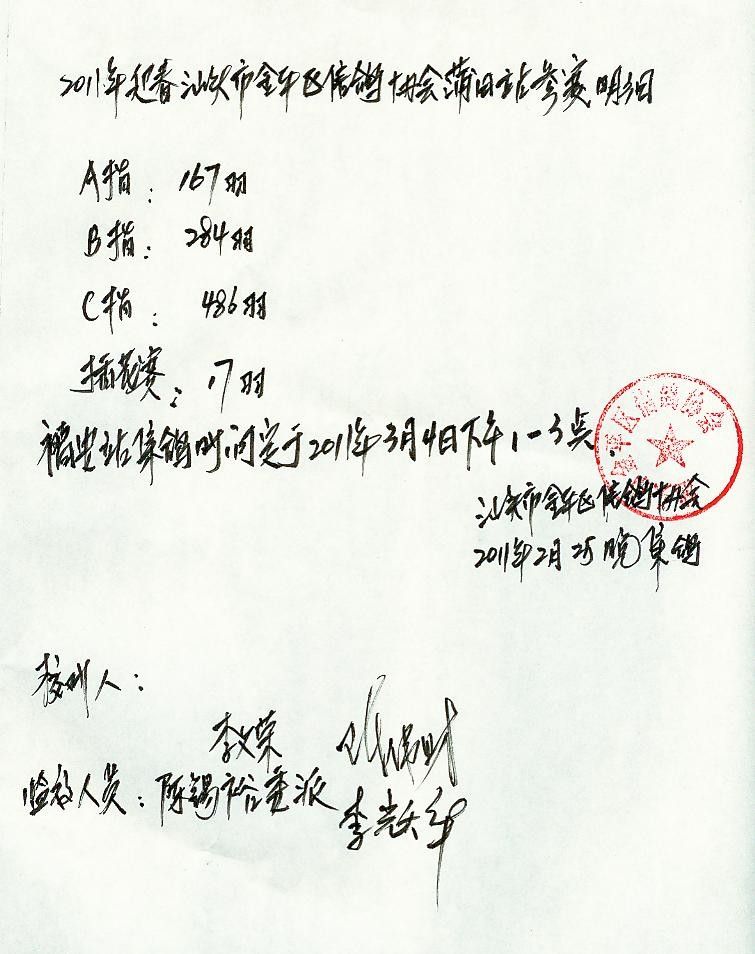 2011年迎春汕头市金平区信鸽协会莆田站参赛明细
A指：167羽
B指：284羽
C指：486羽
插花赛：17羽
福安站集鸽时间定于2011年3月4日下午1-3点.
金平区信鸽协会
汕头市金平区信鸽协会
2011年2月25晚集鸽
校对人：
李文荣
监放人员：陈锡裕委派